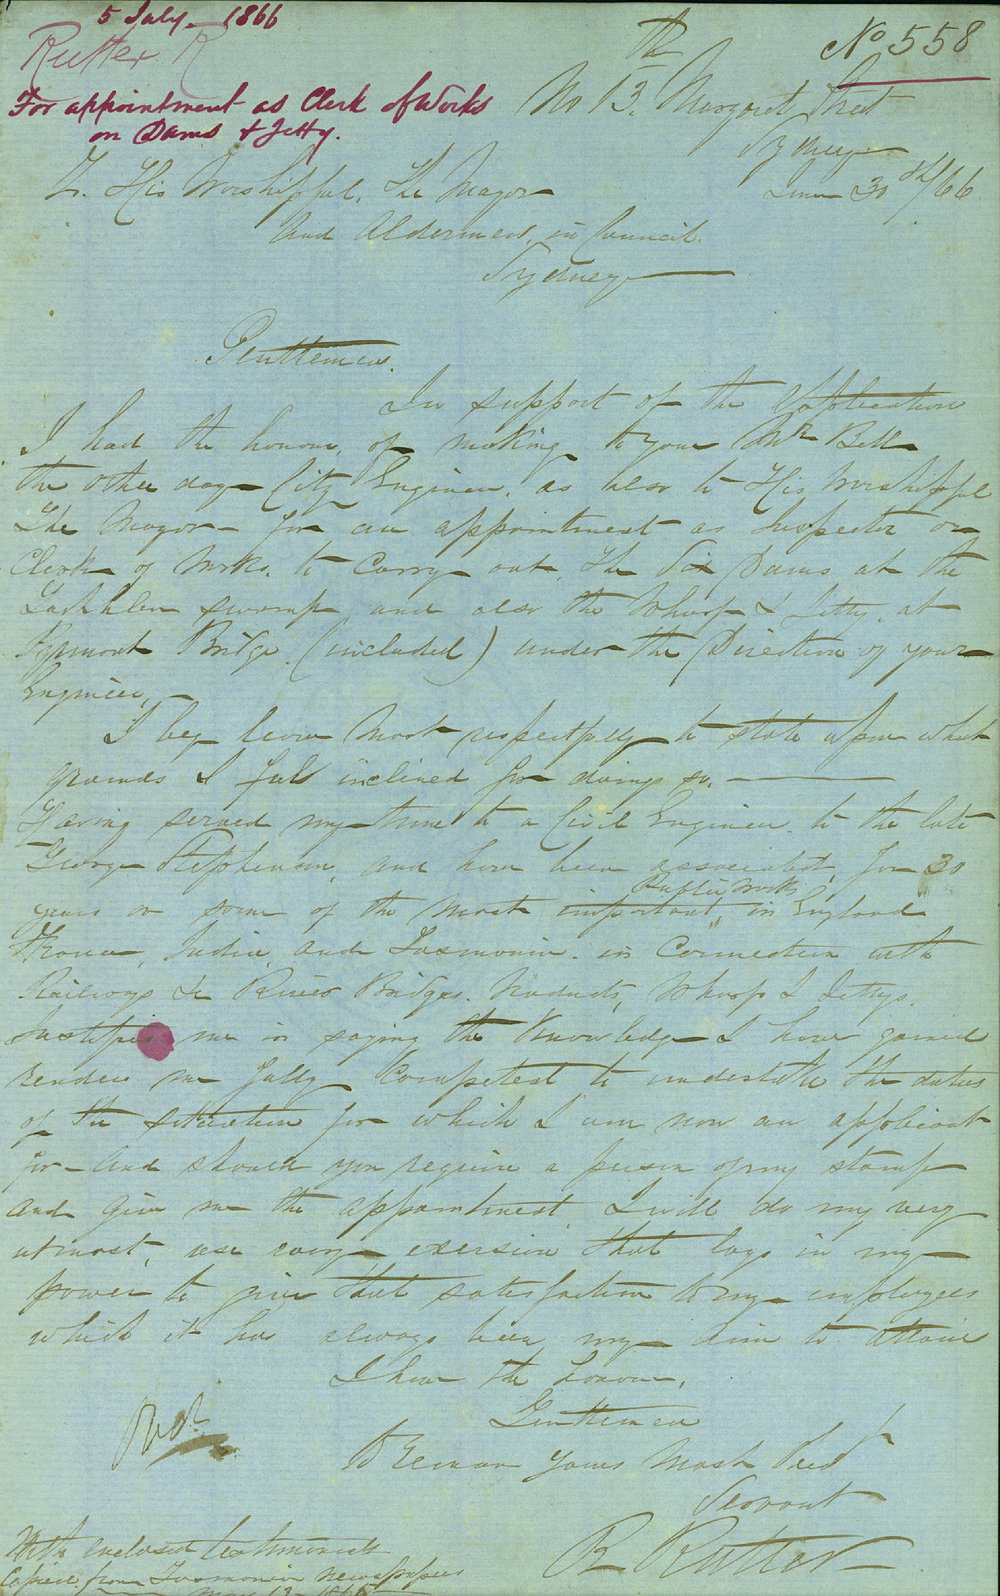 5 July 1866
Rutter R
No 558
For appointment as Clerk of Works
on Dams & Jetty.
No 13. Margaret Street
Sydney
June 30th/66
To His Worshipful, The Mayor
and Aldermen, in Council.
Sydney
Gentlemen.
In support of the Application
I had the honour, of making to your Mr Bell
the other day City Engineer, as also to His Worshipful
The Mayor for an appointment as Inspector or
Clerk of Works, to Carry out, The Six Dams at the
Lachlan swamp and also the Wharf & Jetty, at
Pyrmont Bridge (included) under the Direction of your
Engineer,
I beg leave Most respectfully to state upon what
grounds I feel inclined for doing so.
Having served my time to a Civil Engineer to the late
George Stephenson, and have been associated, for 30
years on some of the most important Public Works, in England
France, India, and Tasmania. in Connection with
Railways & River Bridges. Viaducts, Wharfs & Jettys.
Justifies me in saying the Knowledge I have gained
renders me fully Competent to undertake the duties
of the situation for which I am now an applicant
for and should you require a person of my stamp
and give me the appointment, I will do my very
utmost, use every exersion that lays in my
power to give that satisfaction to my employees
which it has always been my aim to attain
I have the honour,
Gentlemen
To Remain Yours Most Obedt
Servant
R Rutter
With enclosed testimonials
Copied from Tasmanian Newspapers